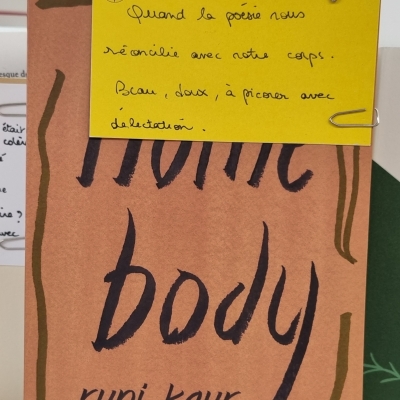 Quand la poésie nous
réconcilie avec notre corps.
Beau, doux, à picorer avec
délectation.
Home
body
rupi kaur
esque de
était
colèr